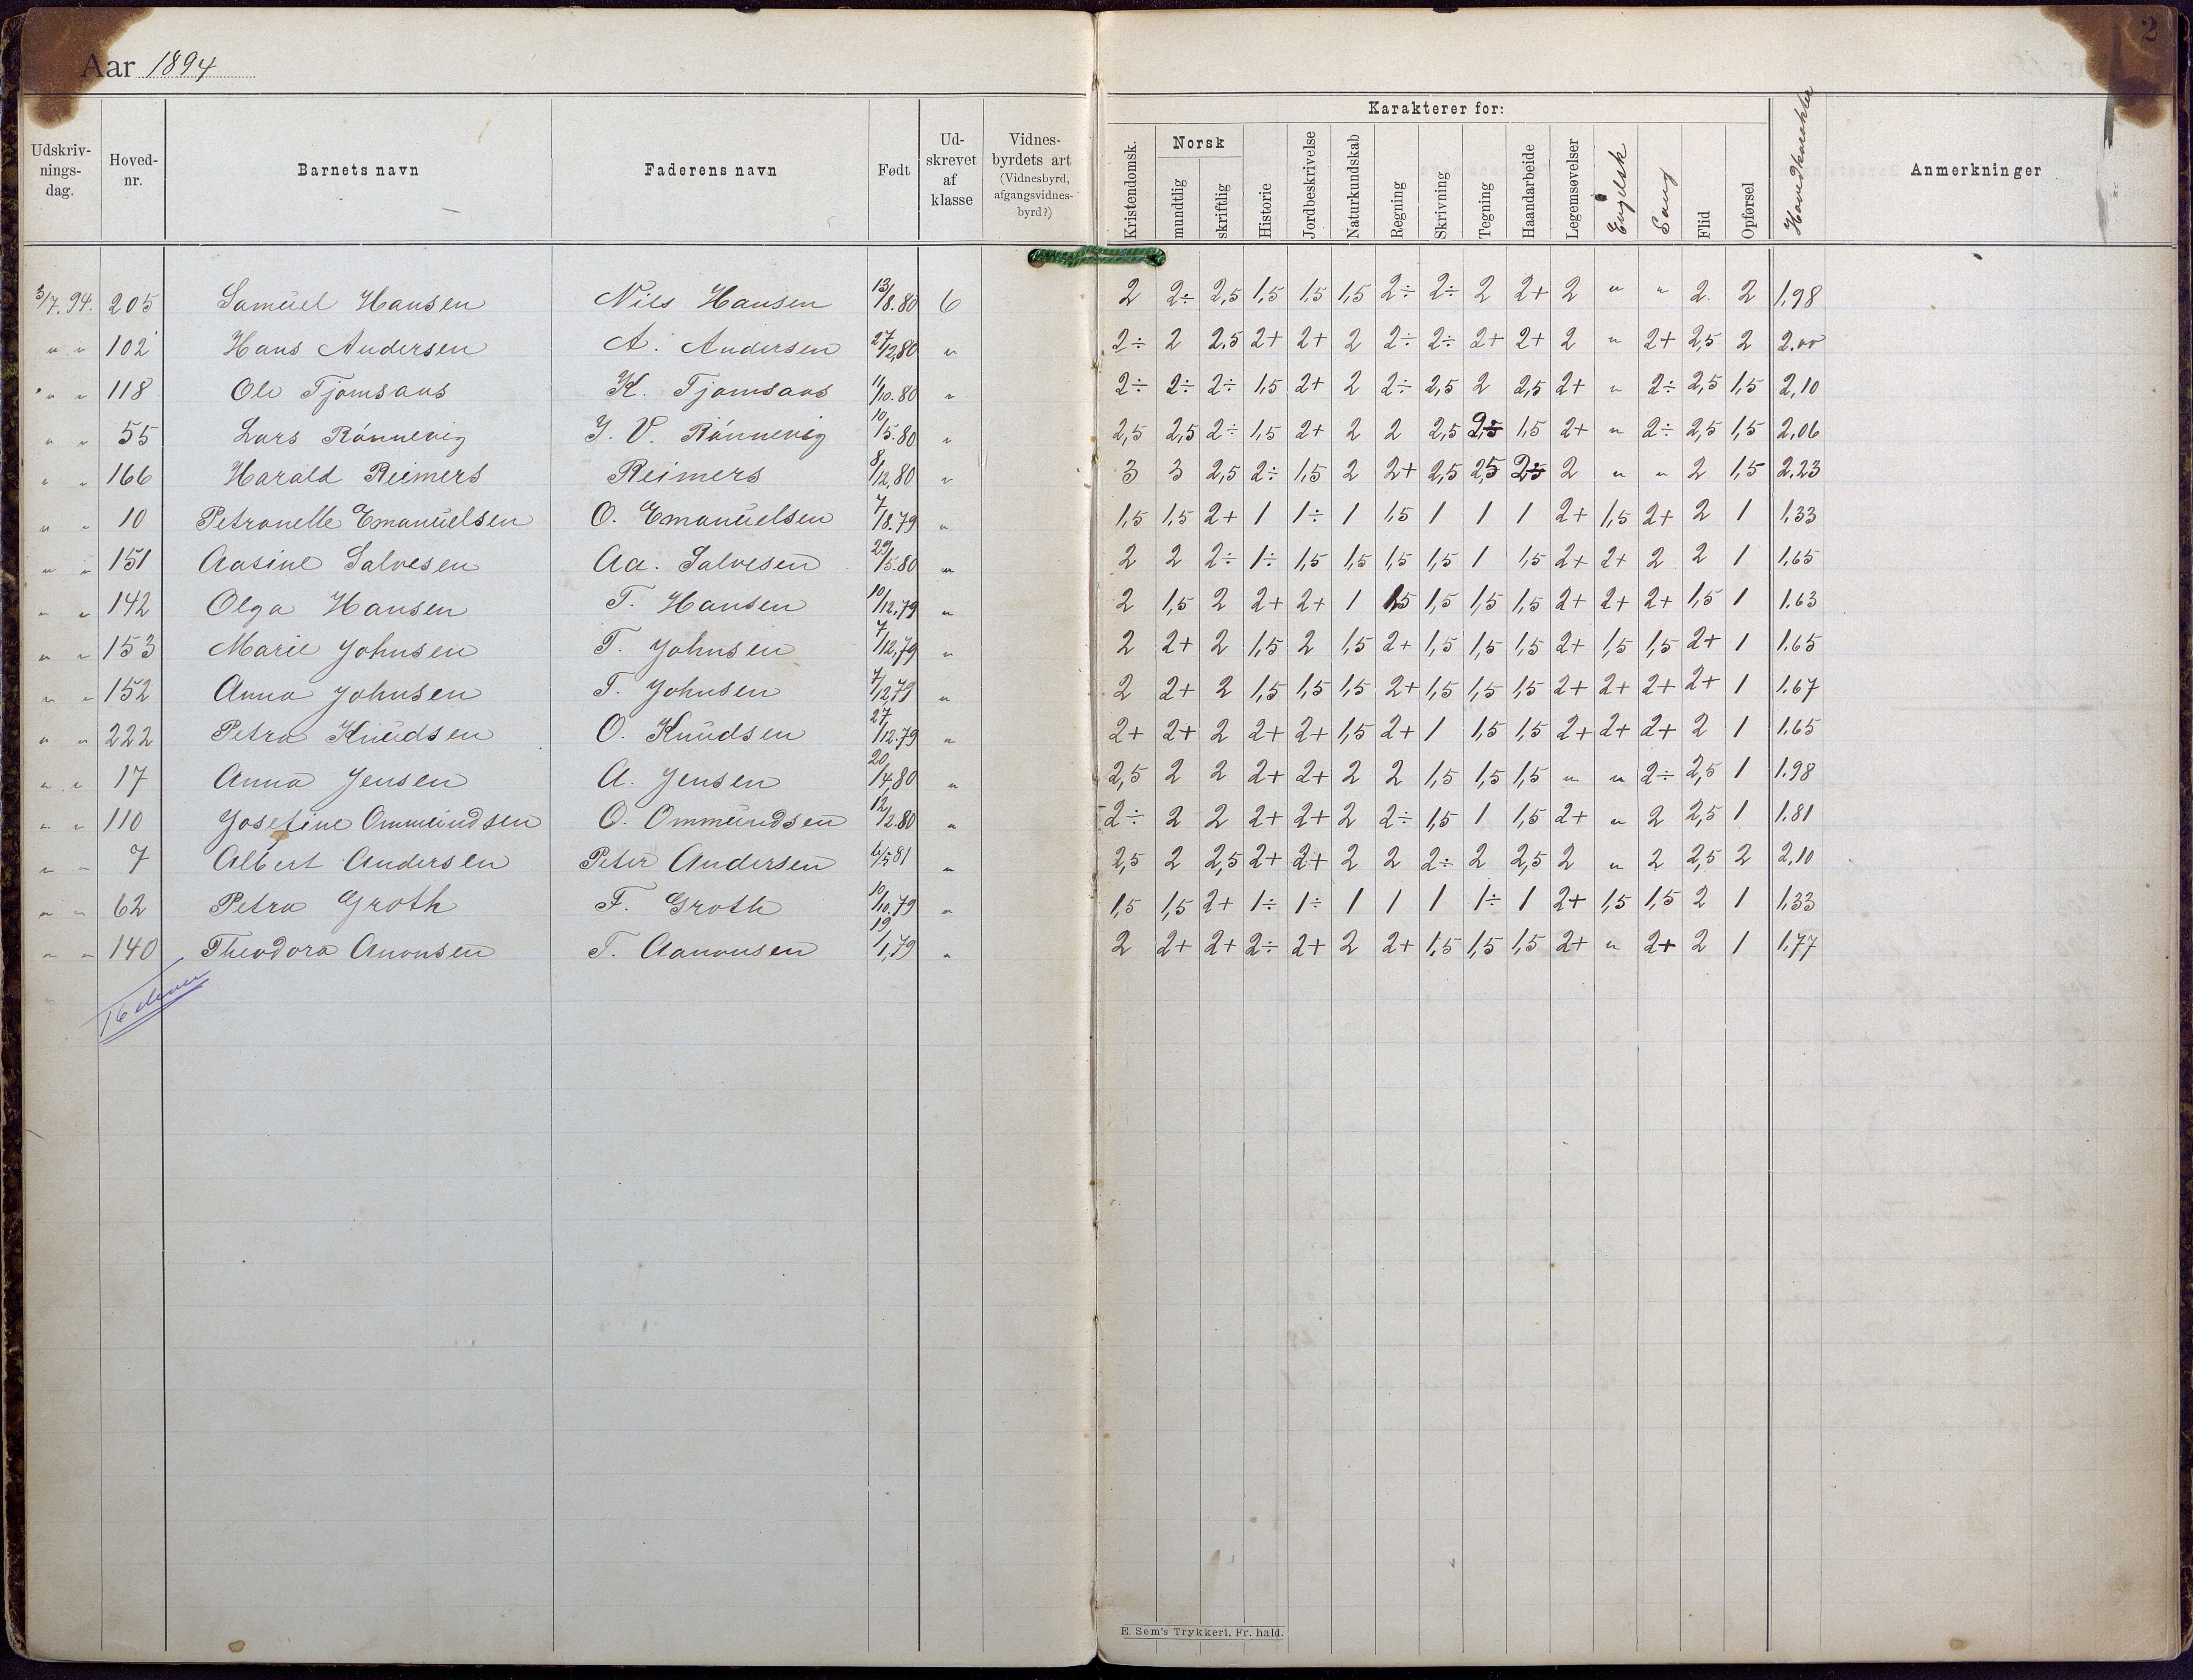 2
Aar 1894
Udskriv-nings-dag. Hoved-nr. Barnets navn Faderens navn Født Ud-skrevet af klasse Vidnes-byrdets art (Vidnesbyrd, afgangsvidnes-byrd?) Karakterer for: Kristendomsk. Norsk mundtlig skriftlig Historie Jordbeskrivelse Naturkundskab Regning Skrivning Tegning Haandarbeide Legemsøvelser Engelsk Sang Flid Opførsel Hovedkarakter Anmerkninger
3/7.94. 205 Samuel Hansen Nils Hansen 13/8.80 6 2 2÷ 2,5 1,5 1,5 1,5 2÷ 2÷ 2 2+ 2 " " 2 2 1,98
" " 102 Hans Andersen A. Andersen 27/12,80 " 2÷ 2 2.5 2+ 2+ 2 2÷ 2÷ 2+ 2+ 2 " 2+ 2,5 2 2.00
" " 118 Ole Tjomsaas K. Tjomsaas 11/10.80 " 2÷ 2÷ 2÷ 1,5 2+ 2 2÷ 2,5 2 2,5 2+ " 2÷ 2,5 1,5 2,10
" " 55 Lars Rönnevig J. V. Rönnevig 10/5.80 " 2,5 2,5 2÷ 1,5 2+ 2 2 2,5 2,5 1,5 2+ " 2÷ 2,5 1,5 2,06
" " 166 Harald Reimers Reimers 8/12,80 " 3 3 2,5 2÷ 1,5 2 2+ 2,5 2,5 2÷ 2 " " 2 1,5 2,23
" " 10 Petronelle Emanuelsen O. Emanuelsen 7/8.79 " 1,5 1,5 2+ 1 1÷ 1 1,5 1 1 1 2+ 1,5 2+ 2 1 1,33
" " 151 Aasine Salvesen Aa. Salvesen 29/5.80 " 2 2 2÷ 1÷ 1,5 1,5 1,5 1,5 1 1,5 2+ 2+ 2 2 1 1,65
" " 142 Olga Hansen T. Hansen 10/12,79 " 2 1,5 2 2+ 2+ 1 1,5 1,5 1,5 1,5 2+ 2+ 2+ 1,5 1 1.63
" " 153 Marie Johnsen T. Johnsen 7/12,79 " 2 2+ 2 1,5 2 1,5 2+ 1,5 1,5 1,5 2+ 1,5 1,5 2+ 1 1.65
" " 152 Anna Johnsen T. Johnsen 7/12,79 " 2 2+ 2 1,5 1,5 1,5 2+ 1,5 1,5 1,5 2+ 2+ 2+ 2+ 1 1.67
" " 222 Petra Knudsen O. Knudsen 27/12.79 " 2+ 2+ 2 2+ 2+ 1,5 2+ 1 1,5 1,5 2+ 2+ 2+ 2 1 1.65
" " 17 Anna Jensen A. Jensen 20/4,80 " 2,5 2 2 2+ 2+ 2 2 1,5 1,5 1,5 " " 2÷ 2,5 1 1.98
" " 110 Josefine Ommundsen O. Ommundsen 12/2.80 " 2÷ 2 2 2+ 2+ 2 2÷ 1,5 1 1,5 2+ " 2 2,5 1 1.81
" " 7 Albert Andersen Peter Andersen 6/5 81 " 2,5 2 2,5 2+ 2+ 2 2 2÷ 2 2,5 2 " 2 2,5 2 2,10
" " 62 Petra Groth F. Groth 10/10,79 " 1,5 1,5 2+ 1÷ 1÷ 1 1 1 1÷ 1 2+ 1,5 1,5 2 1 1,33
" " 140 Theodora Anonsen T. Aanonsen 19/1,79 " 2 2+ 2+ 2÷ 2+ 2 2+ 1,5 1,5 1,5 2+ " 2+ 2 1 1.77
16 elever
E. Sem's Trykkeri, Fr. hald.